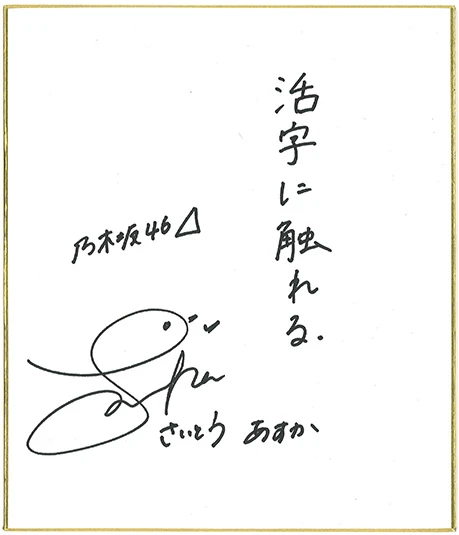 活字に触れる.
乃木坂46
さいとう あすか